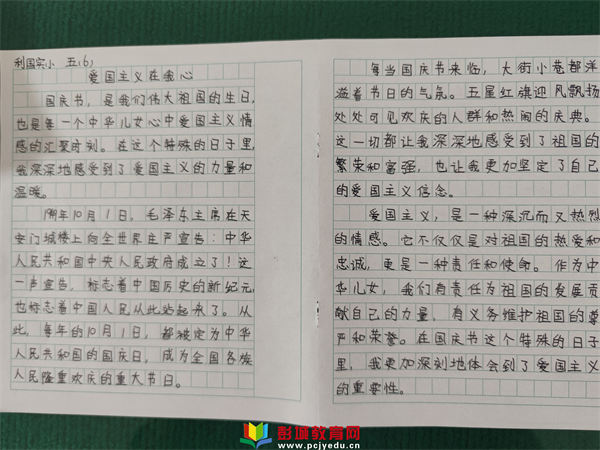 利国实小 五(6)
爱国主义在我心
国庆节，是我们伟大祖国的生日，
也是每一个中华儿女心中爱国主义情
感的汇聚时刻。在这个特殊的日子里，
我深深地感受到了爱国主义的力量和
温暖。
1949年10月1日，毛泽东主席在天
安门城楼上向全世界庄严宣告：中华
人民共和国中央人民政府成立了！这
一声宣告，标志着中国历史的新纪元，
也标志着中国人民从此站起来了。从
此，每年的10月1日，都被定为中华
人民共和国的国庆日，成为全国各族
人民隆重欢庆的重大节日。
每当国庆节来临，大街小巷都洋
溢着节日的气氛。五星红旗迎风飘扬
处处可见欢庆的人群和热闹的庆典。
这一切都让我深深地感受到了祖国的
繁荣和富强，也让我更加坚定了自己
的爱国主义信念。
爱国主义，是一种深沉而又热烈
的情感。它不仅仅是对祖国的热爱和
忠诚，更是一种责任和使命。作为中
华儿女，我们有责任为祖国的发展贡
献自己的力量，有义务维护祖国的尊
严和荣誉。在国庆节这个特殊的日子
里，我更加深刻地体会到了爱国主义
的重要性。
彭城教育网
www.pcjyedu.cn